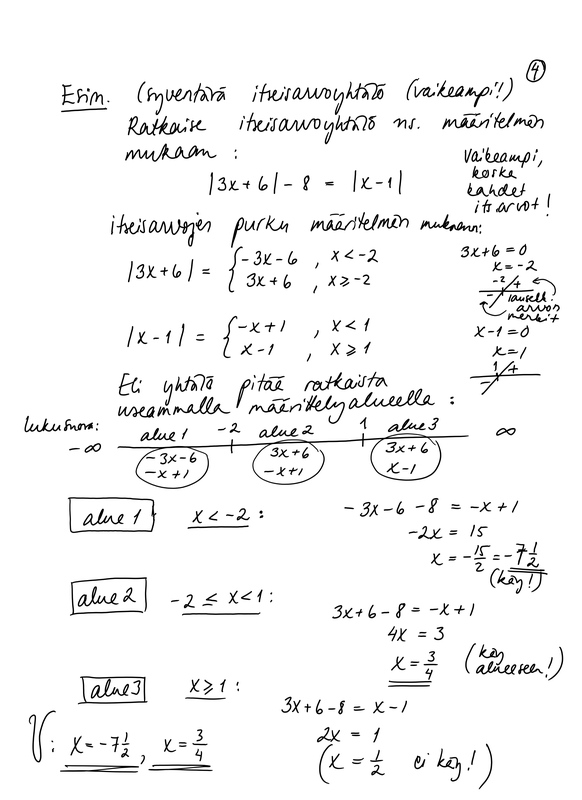 ④
Esim. (syventävä itseisarvoyhtälö (vaikeampi!)
Ratkaise itseisarvoyhtälö ns. määritelmän
mukaan:
|3x+6| - 8 = |x-1|
Vaikeampi,
koska
kahdet
its.arvot!
itseisarvojen purku määritelmän mukaan:
|3x+6| = { -3x-6 , x < -2
3x+6 , x ≥ -2
3x+6 = 0
x = -2
-2 +
-
lausek.
arvon
merkit
|x-1| = { -x+1 , x < 1
x-1 , x ≥ 1
x-1 = 0
x = 1
1 +
-
Eli yhtälö pitää ratkaista
useammalla määrittelyalueella:
lukusuora:
-∞ alue 1 -2 alue 2 1 alue 3 ∞
-3x-6 3x+6 3x+6
-x+1 -x+1 x-1
alue 1 x < -2 : -3x-6-8 = -x+1
-2x = 15
x = -15/2 = -7 1/2
(käy!)
alue 2 -2 ≤ x < 1: 3x+6-8 = -x+1
4x = 3
x = 3/4 (käy
alueeseen!)
alue 3 x ≥ 1 : 3x+6-8 = x-1
2x = 1
(x = 1/2 ei käy!)
V: x = -7 1/2, x = 3/4